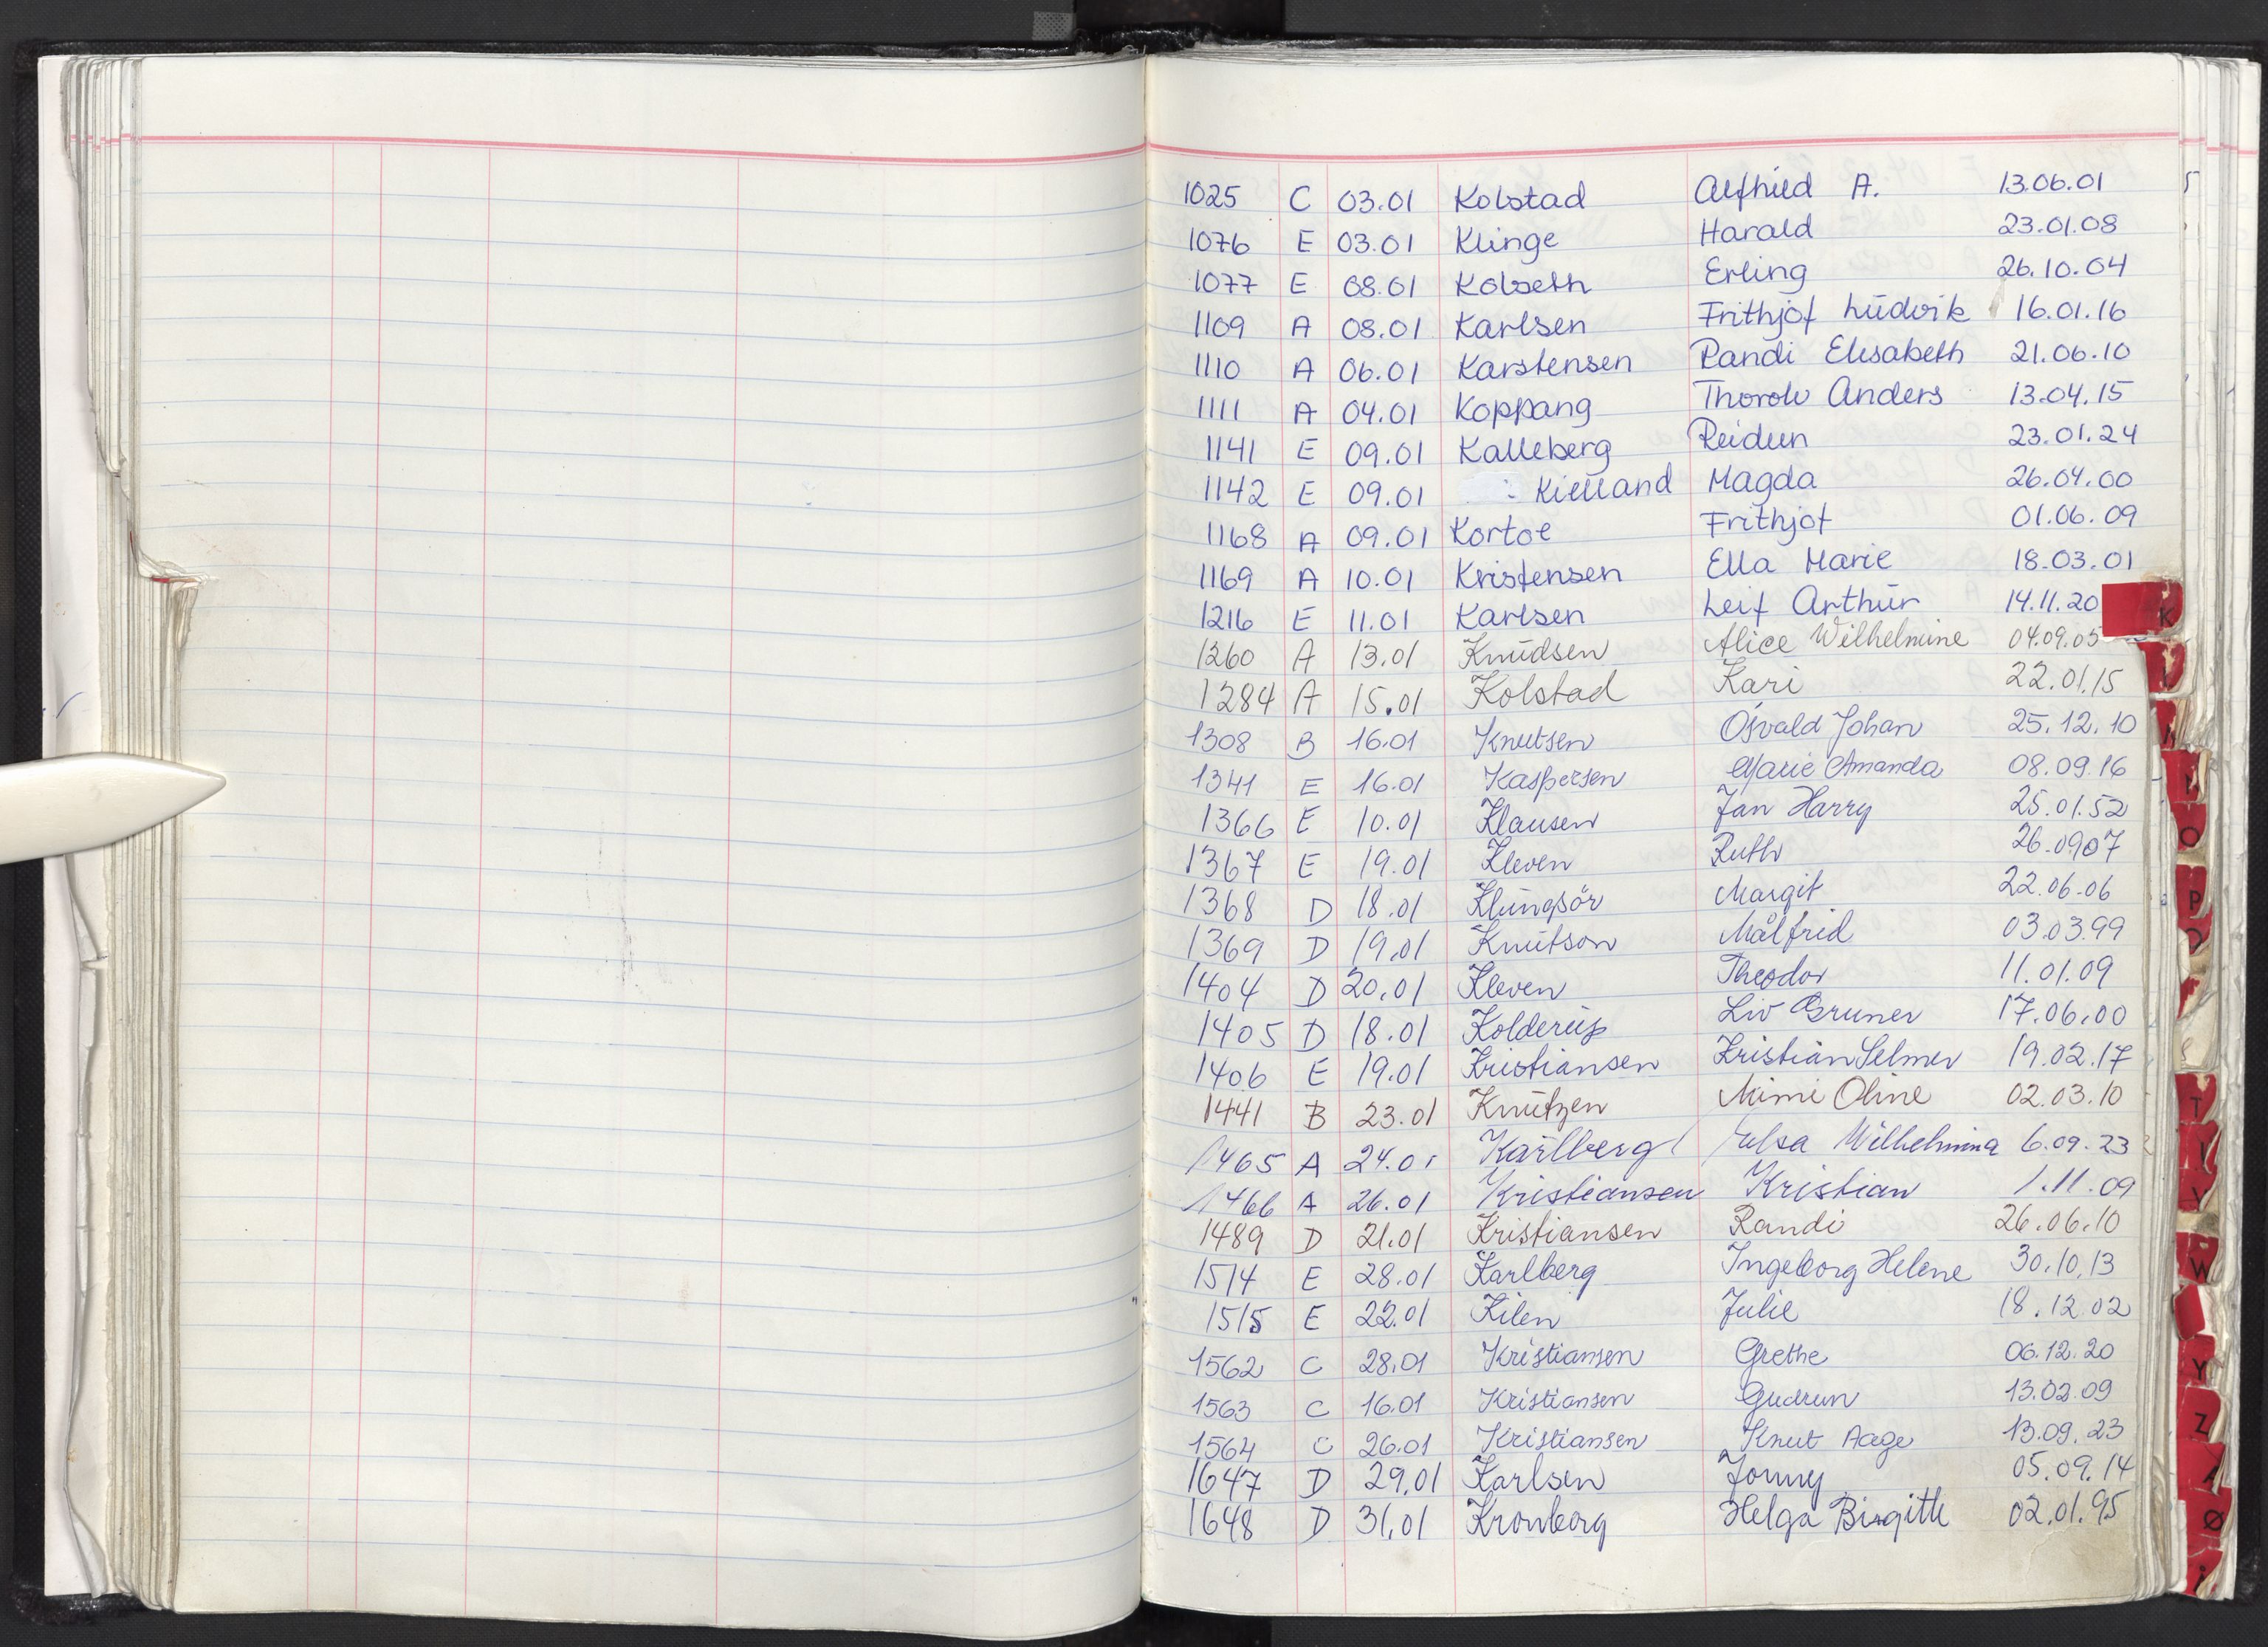 1025 C 03.01 Kolstad Alfhild A. 13.06.01
1076 E 03.01 Klinge Harald 23.01.08
1077 E 08.01 Kolseth Erling 26.10.04
1109 A 08.01 Karlsen Frithjof Ludvik 16.01.16
1110 A 06.01 Karstensen Randi Elisabeth 21.06.10
1111 A 04.01 Koppang Thorolv Anders 13.04.15
1141 E 09.01 Kalleberg Reidun 23.01.24
1142 E 09.01 Kielland Magda 26.04.00
1168 A 09.01 Kortoe Frithjof 01.06.09
1169 A 10.01 Kristensen Ella Marie 18.03.01
1216 E 11.01 Karlsen Leif Arthur 14.11.20
K
1260 A 13.01 Knudsen Alice Wilhelmine 04.09.05
1284 A 15.01 Kolstad Kari 22.01.15
1308 B 16.01 Knutsen Osvald Johan 25.12.10
1341 E 16.01 Kaspersen Marie Amanda 08.09.16
1366 E 10.01 Klausen Jan Harry 25.01.52
1367 E 19.01 Kleven Ruth 26.0907
O
1368 D 18.01 Klungsör Margit 22.06.06
P
1369 D 19.01 Knutson Målfrid 03.03.99
1404 D 20.01 Kleven Theodor 11.01.09
1405 D 18.01 Kolderup Liv Gruner 17.06.00
1406 E 19.01 Kristiansen Kristian Selmer 19.02.17
1441 B 23.01 Knutzen Mimi Oline 02.03.10
T
1465 A 24.01 Karlberg Elsa Wilhelmina 6.09.23
1466 A 26.01 Kristiansen Kristian 1.11.09
1489 D 21.01 Kristiansen Randi 26.06.10
1514 E 28.01 Karlberg Ingeborg Helene 30.10.13
W
1515 E 22.01 Kilen Julie 18.12.02
1562 C 28.01 Kristiansen Grethe 06.12.20
Y
1563 C 16.01 Kristiansen Gudrun 13.02.09
Z
1564 C 26.01 Kristiansen Knut Aage 13.09.23
1647 D 29.01 Karlsen Jonny 05.09.14
1648 D 31.01 Kronborg Helga Birgitte 02.01.95
Ø